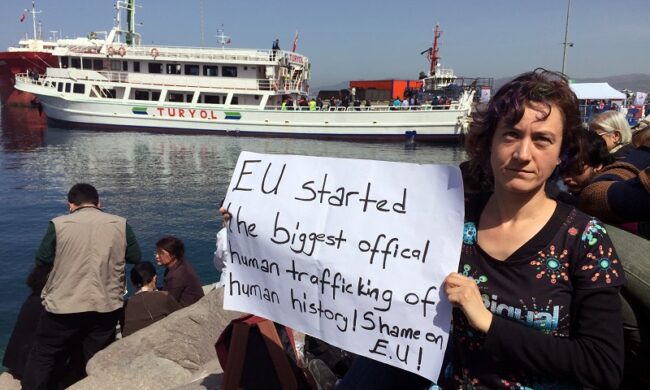 TURYOL
EU started
the biggest offical
human trafficking of
human history! Shame on
E.U!
Desigual